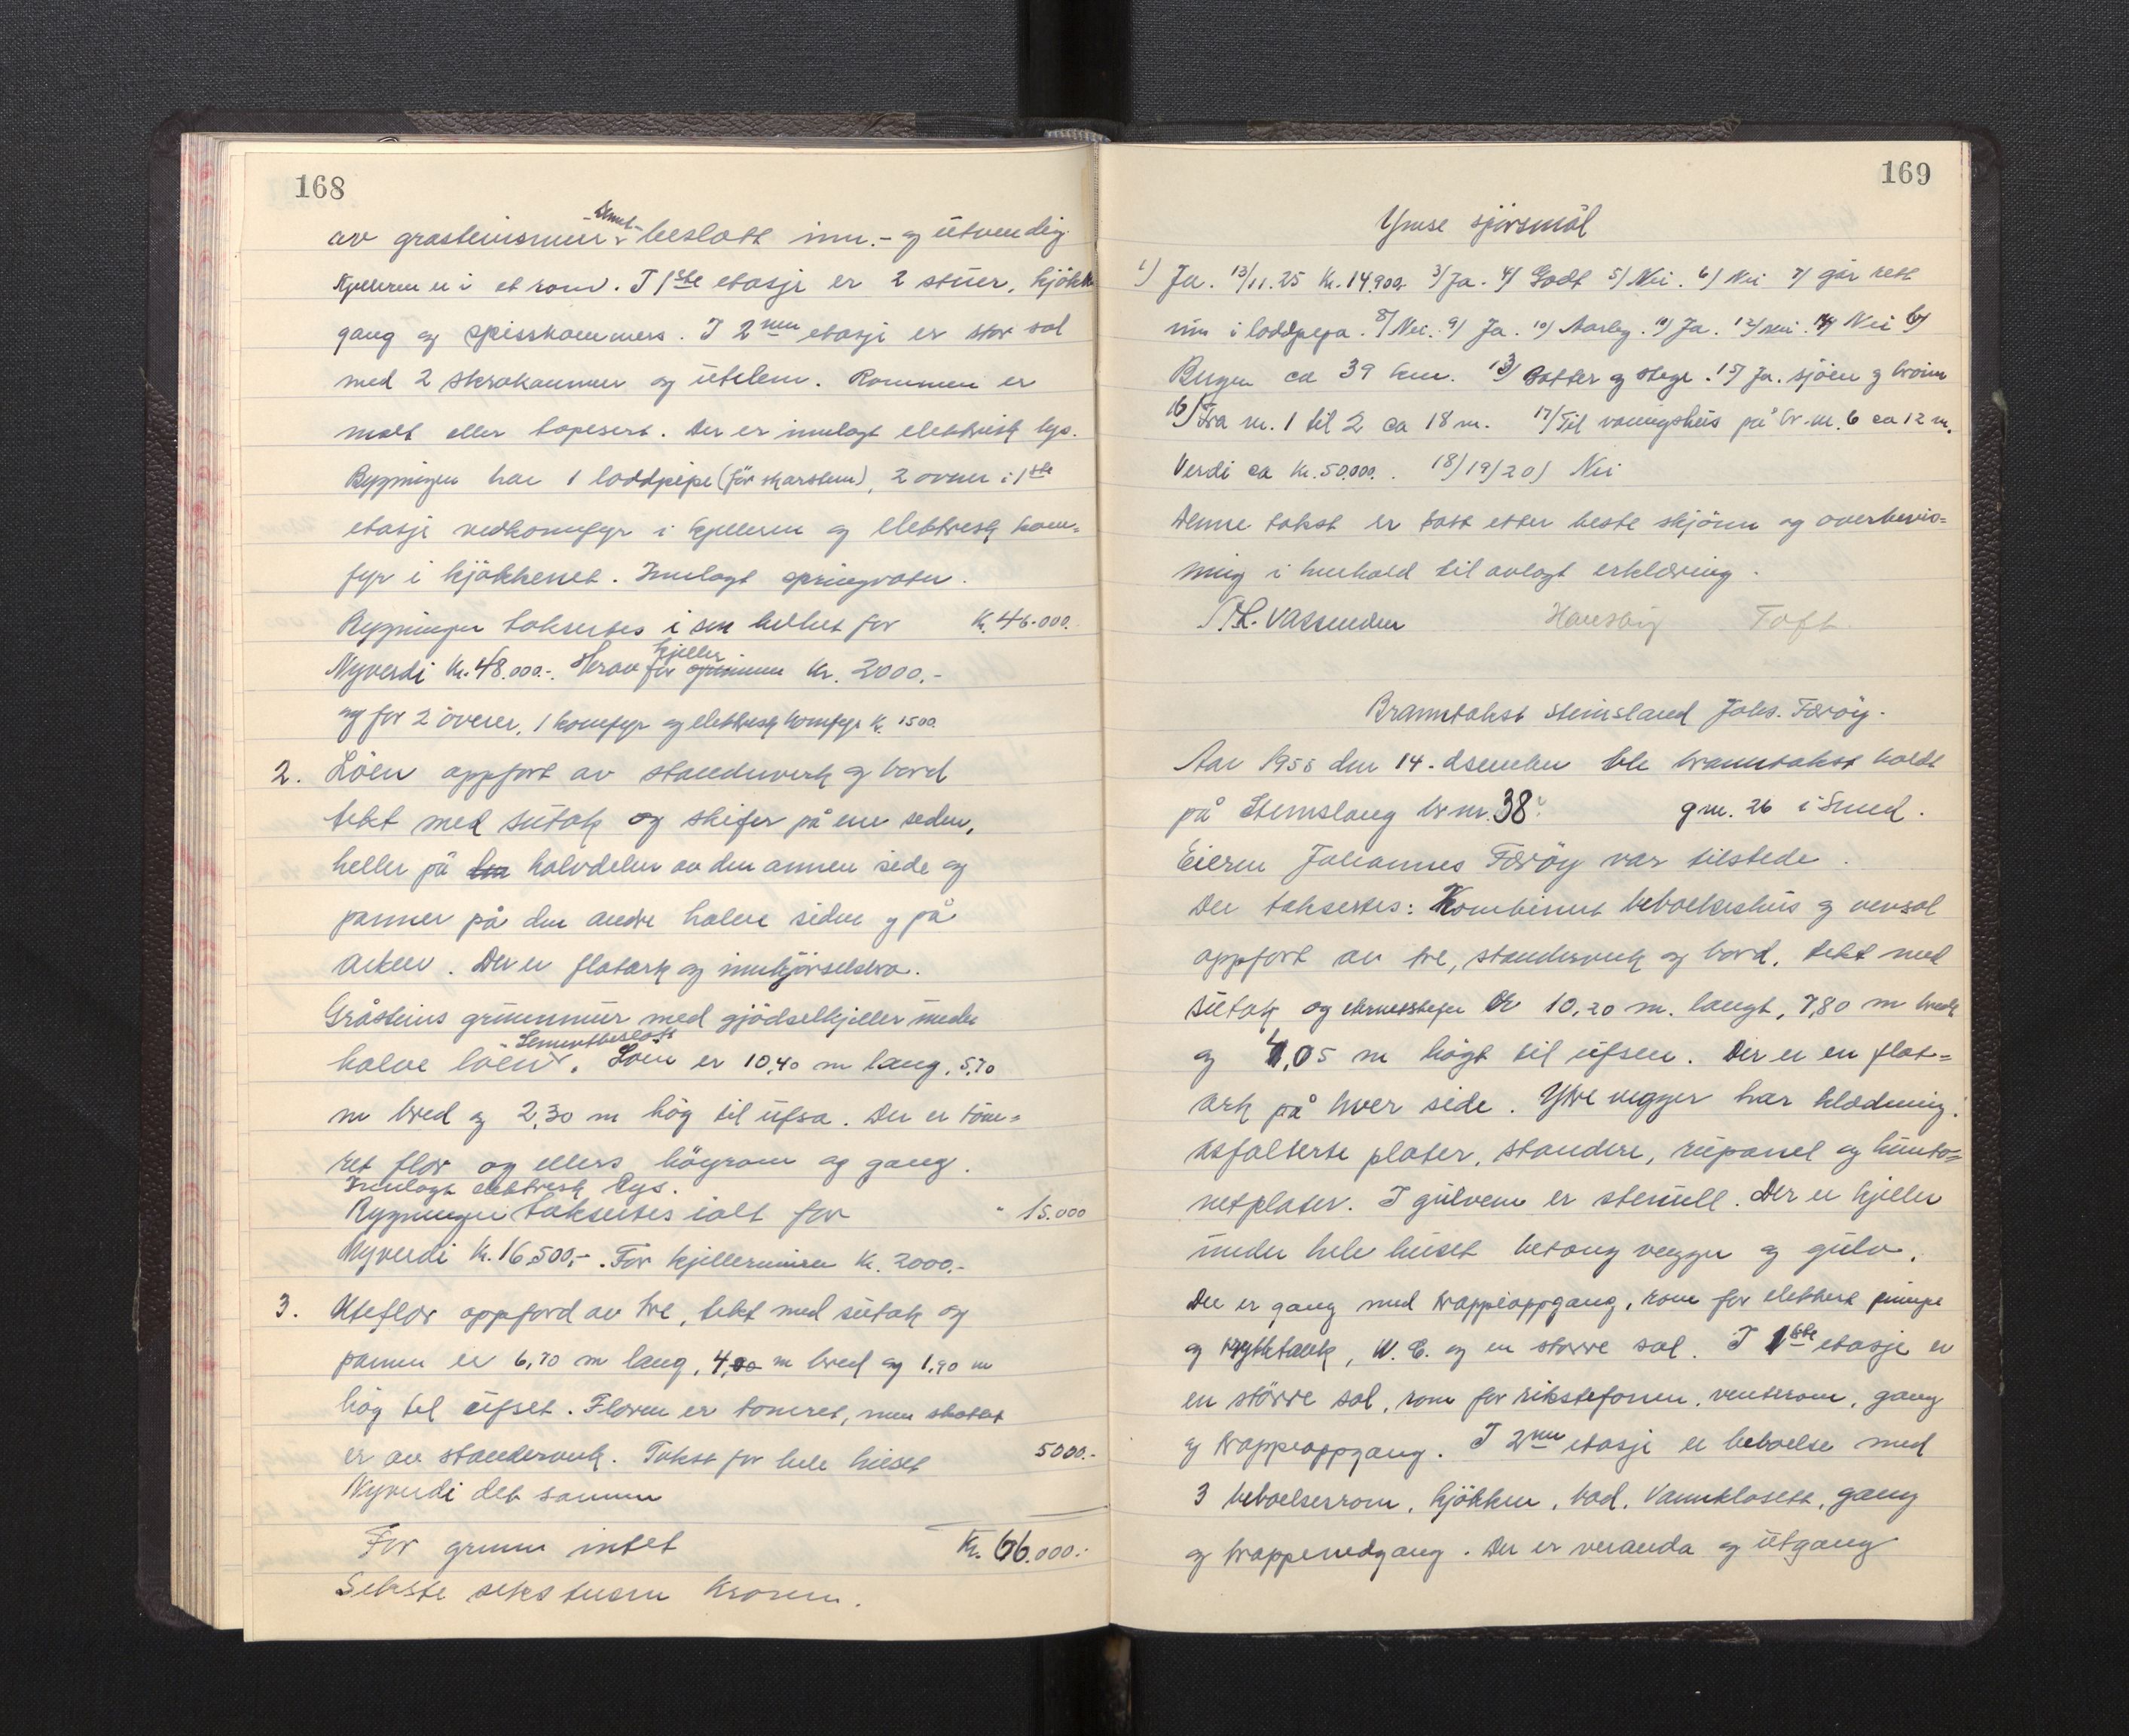 168
av grasteinsmur sement-beslått inn.- og utvendig
Kjelleren er i et rom. I 1ste etasje er 2 stuer, kjökk
gang og spisskammers. I 2nen etasje er stor sal
med 2 skrakammer og utelem. Rommene er
malt eller tapesert. Der er innlagt elektrisk lys.
Bygningen har 1 loddpipe (för skarsten), 2 ovner i 1ste
etasje vedkomfyr i kjelleren og elektrisk kom=
fyr i kjökkenet. Innlagt springvatn.
Bygningen takseres i sin helhet for K. 46.000.
Nyverdi Kr. 48.000.-. Herav for kjeller Kr. 2000.-
og for 2 ovner, 1 komfyr og elektrisk komfyr K. 1500.
2. Löen oppfört av standerverk og bord
tekt med sutak og skifer på ene siden,
heller på halvdelen av den annen side og
panner på den andre halve siden og på
arken. Der er flatark og innkjörselsbro.
Gråsteins grunnmur med gjödselkjeller under
halve löen Sementbeslått. Löen er 10,40 m lang, 5,70
m bred og 2,30 m hög til ufsa. Der er töm=
ret flor og ellers höyrom og gang.
Innlagt elektrisk lys.
Bygningen takseres ialt for " 15.000
Nyverdi K. 16.500,-. For kjellermuren K. 2000.-
3. Uteflor oppförd av tre, tekt med sutak og
panner er 6,70 m lang, 4,00 m bred og 1,90 m
hög til ufset. Floren er tomret, men skotet
er av standerverk. Takst for hele huset 5000.-
Nyverdi det samme
For grunn intet Kr. 66.000.-
Sekste seks tusen Kroner.
169
Ymse spörsmål
1) Ja. 13/11.25 Kr. 14.900. 3) Ja. 4) Godt 5) Nei. 6) Nei 7) går rett
inn i loddpipa. 8) Nei. 9) Ja. 10) Aarleg. 11) Ja. 12) nei. 14) Nei
Bergen ca 39 km. 13) Bötter og stige. 15) Ja. sjöen og brönn
16) Fra nr. 1 til 2 ca 18 m. 17) Til våningshus på br. nr. 6 ca 12 m.
Verdi ca Kr. 50.000. 18/19/20) Nei
Denne takst er tatt etter beste skjönn og overbevis=
ning i henhold til avlagt erklæring.
H. Vassenden Hausöy Toft.
Branntakst Steinsland Johs. Færöy.
Aar 1955 den 14. desember ble branntakst holdt
på Steinsland br nr. 38 gnr. 26 i Sund.
Eieren Johannes Færöy var tilstede.
Der takseres: Kombinert beboelseshus og
oppfört av tre, standerverk og bord, tekt med
sutak og Er 10,20 m. langt, 7,80 m bredt
og 4,05 m högt til ufsen. Der er en flat=
ark på hver side. Ytre vegger har klædning,
asfalterte plater, standere, rupanel og hunto=
netplater. I gulvene er stenull. Der er kjeller
under hele huset betong vegger og gulv.
Der er gang med trappeoppgang, rom for elektrisk pumpe
og trykktank, W.C. og en större sal. I 1ste etasje er
en större sal, rom for rikstefonen, venterom, gang
og trappeoppgang. I 2nen etasje er beboelse med
3 beboelsesrom, kjökken, bad, vannklosett, gang
og trappenedgang. Der er veranda og utgang